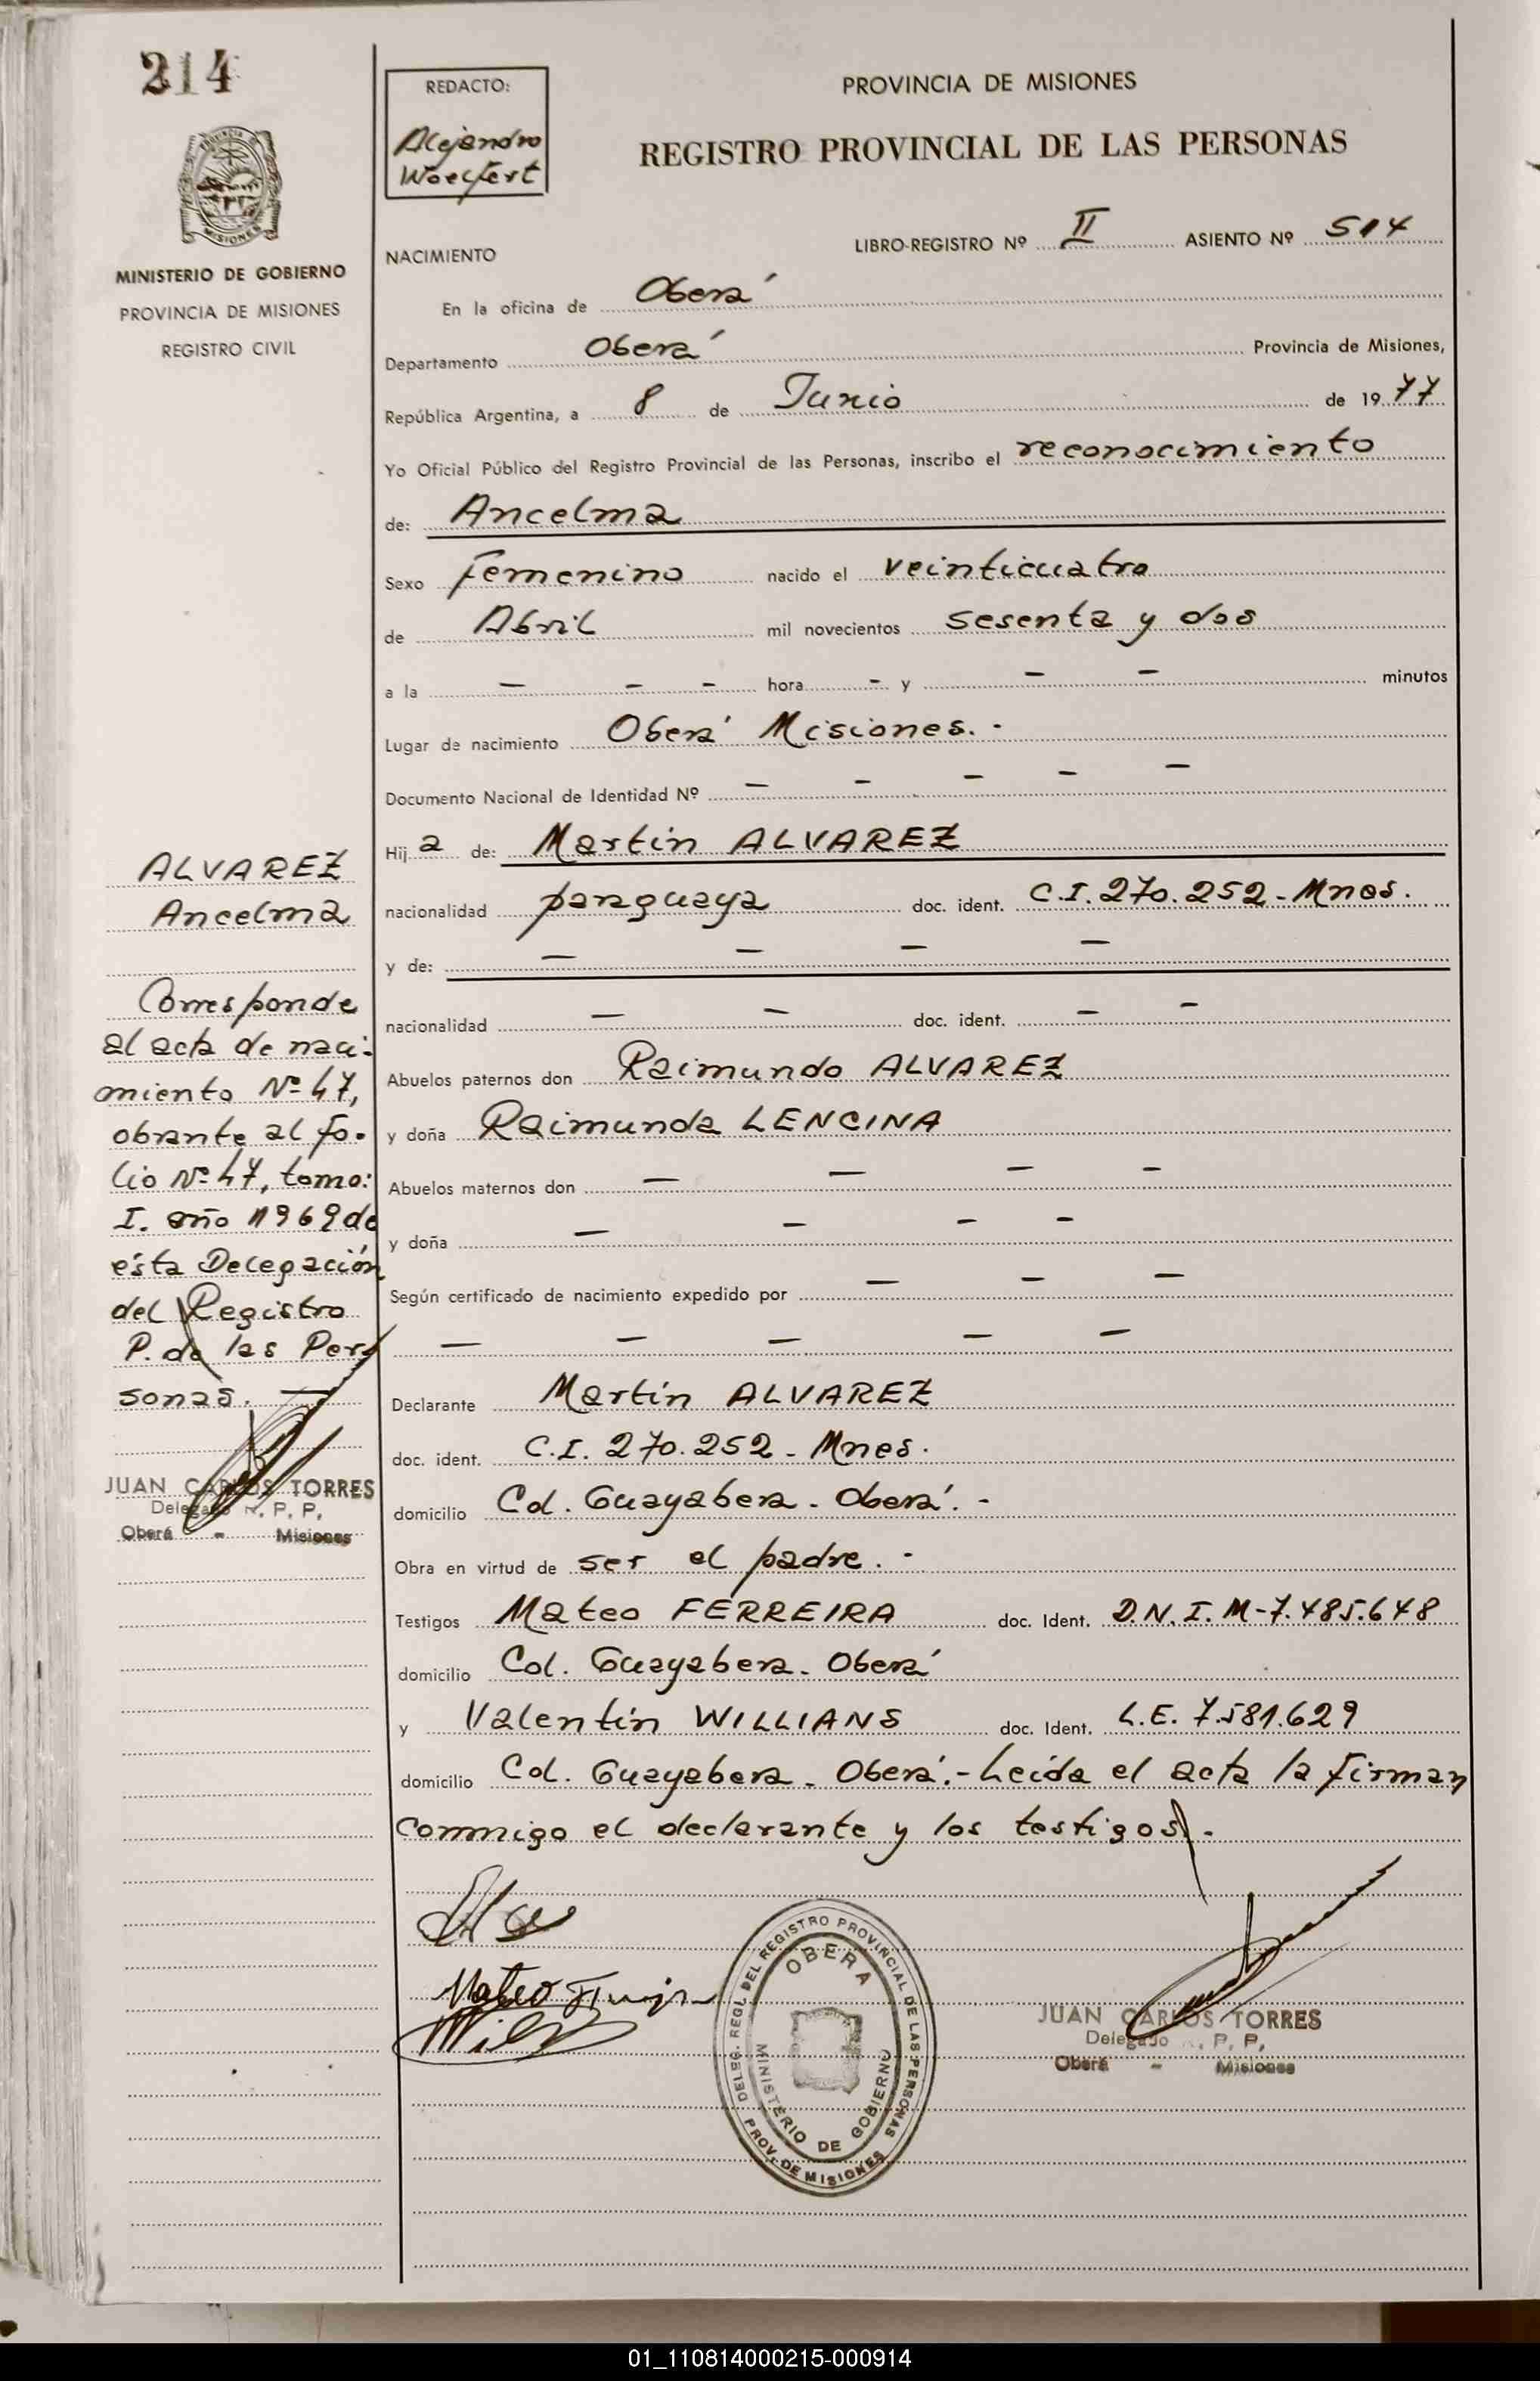 214
PROVINCIA
MISIONES
MINISTERIO DE GOBIERNO
PROVINCIA DE MISIONES
REGISTRO CIVIL
REDACTO:
Alejandro
PROVINCIA DE MISIONES
REGISTRO PROVINCIAL DE LAS PERSONAS
LIBRO-REGISTRO Nº II ASIENTO Nº 514
NACIMIENTO
En la oficina de Oberá
Departamento Oberá Provincia de Misiones,
República Argentina, a 8 de Junio de 1977
Yo Oficial Público del Registro Provincial de las Personas, inscribo el reconocimiento
de: Ancelma
Sexo Femenino nacido el veinticuatro
de Abril mil novecientos sesenta y dos
a la - - - hora - y - - minutos
Lugar de nacimiento Oberá Misiones. -
Documento Nacional de Identidad Nº - - - - -
Hija de: Martin ALVAREZ
nacionalidad paraguaya doc. ident. C.I. 270.252 - Mnes.
y de: - - - -
nacionalidad - - doc. ident. - -
Abuelos paternos don Raimundo ALVAREZ
y doña Raimunda LENCINA
Abuelos maternos don - - - -
y doña - - - -
Según certificado de nacimiento expedido por - - -
- - - - -
Declarante Martín ALVAREZ
doc. ident. C.I. 270.252 - Mnes.
domicilio Col. Guayabera - Oberá. -
Obra en virtud de ser el padre. -
Testigos Mateo FERREIRA doc. Ident. D.N.I. M-7.485.648
domicilio Col. Guayabera - Oberá
y Valentín WILLIANS doc. Ident. L.E. 7.581.629
domicilio Col. Guayabera - Oberá.- Leída el acta la firman
conmigo el declarante y los testigos. -
ALVAREZ
Ancelma
Corresponde
al acta de naci-
miento Nº 47,
obrante al fo-
lio Nº 47, tomo:
I. año 1969 de
ésta Delegación
del Registro
P. de las Per-
sonas. -
JUAN CARLOS TORRES
Delegado R. P. P.
Oberá - Misiones
Mateo
DELEG. REGL. DEL REGISTRO PROVINCIAL DE LAS PERSONAS
PROV. DE MISIONES
OBERA
MINISTERIO DE GOBIERNO
JUAN CARLOS TORRES
Delegado R. P. P.
Oberá - Misiones
01_110814000215-000914